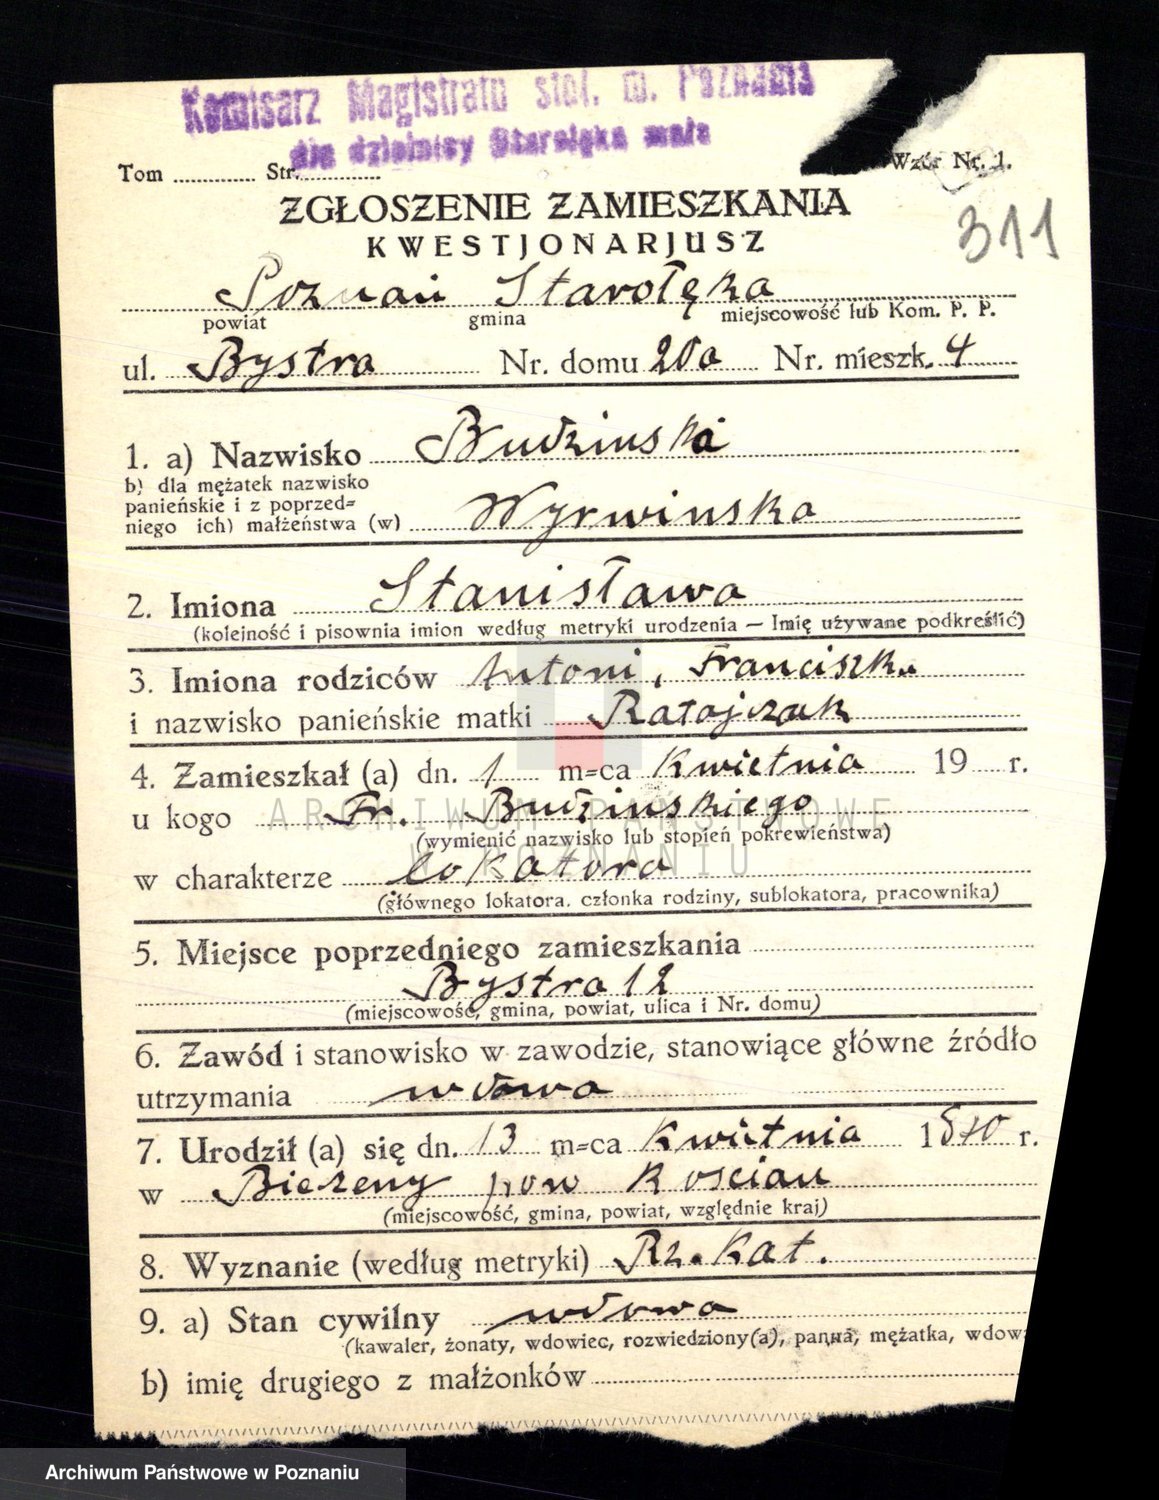 Komisarz Magistratu stoł. m. Poznania
dla dzielnicy Starołęka mała
Tom ............ Str. ............ Wzór Nr. 1.
ZGŁOSZENIE ZAMIESZKANIA
KWESTJONARJUSZ
311
Poznań Starołęka
powiat gmina miejscowość lub Kom. P. P.
ul. Bystra Nr. domu 20a Nr. mieszk. 4
1. a) Nazwisko Budzinska
b) dla mężatek nazwisko
panieńskie i z poprzed=
niego ich) małżeństwa (w) Wyrwinska
2. Imiona Stanisława
(kolejność i pisownia imion według metryki urodzenia — Imię używane podkreślić)
3. Imiona rodziców Antoni, Franciszka
i nazwisko panieńskie matki Ratajczak
4. Zamieszkał (a) dn. 1 m=ca Kwietnia 19 r.
u kogo Fr. Budzinskiego
(wymienić nazwisko lub stopień pokrewieństwa)
w charakterze lokatora
(głównego lokatora. członka rodziny, sublokatora, pracownika)
5. Miejsce poprzedniego zamieszkania
Bystra 12
(miejscowość, gmina, powiat, ulica i Nr. domu)
6. Zawód i stanowisko w zawodzie, stanowiące główne źródło
utrzymania wdowa
7. Urodził (a) się dn. 13 m=ca Kwietnia 1870 r.
w Bieżeny pow Kościan
(miejscowość, gmina, powiat, względnie kraj)
8. Wyznanie (według metryki) Rz. Kat.
9. a) Stan cywilny wdowa
(kawaler, żonaty, wdowiec, rozwiedziony(a), panna, mężatka, wdowa
b) imię drugiego z małżonków
ARCHIWUM PAŃSTWOWE
W POZNANIU
Archiwum Państwowe w Poznaniu